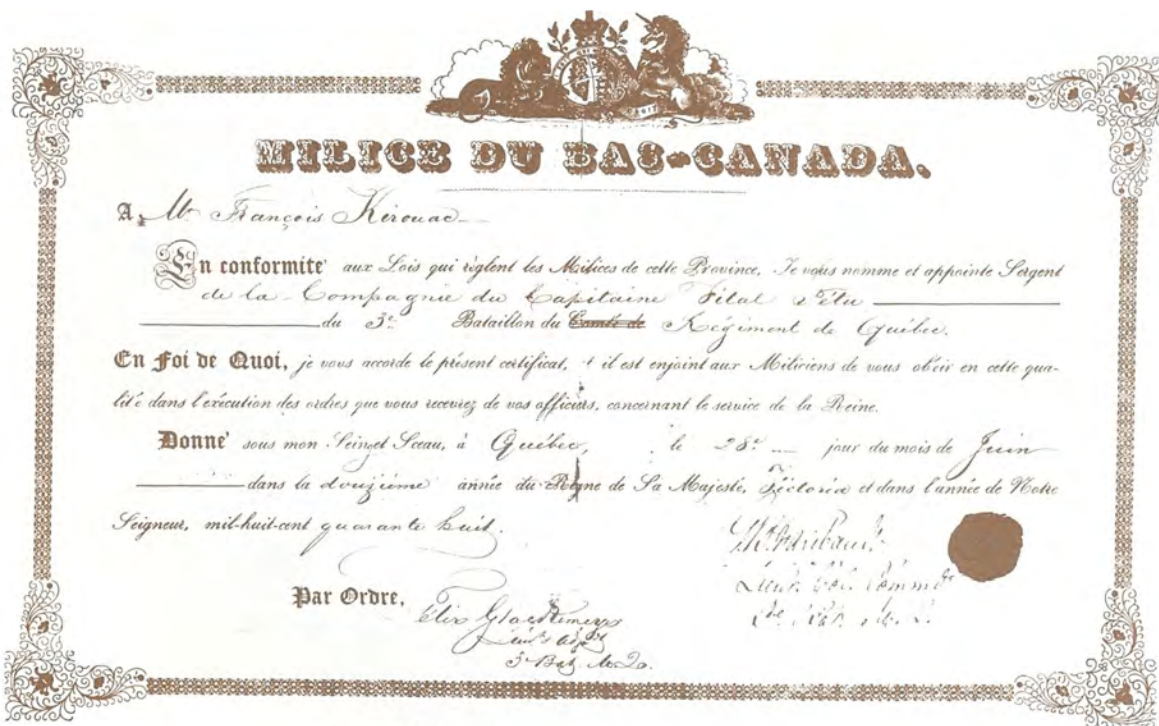 MILICE DU BAS-CANADA.
A, Mr François Kirouac
En conformité aux Lois qui règlent les Milices de cette Province, Je vous nomme et appointe Sergent
de la Compagnie du Capitaine Vital Têtu
du 3e Bataillon du Comté de Régiment de Québec.
En Foi de Quoi, je vous accorde le présent certificat, et il est enjoint aux Miliciens de vous obéir en cette qua-
lité dans l'exécution des ordres que vous recevrez de vos officiers, concernant le service de la Reine.
Donné sous mon Seing et Sceau, à Québec, le 28e jour du mois de Juin
dans la douzième année du Règne de Sa Majesté, Victoria et dans l'année de Notre
Seigneur, mil-huit-cent quarante huit.
Par Ordre,
Félix
3e Bat.